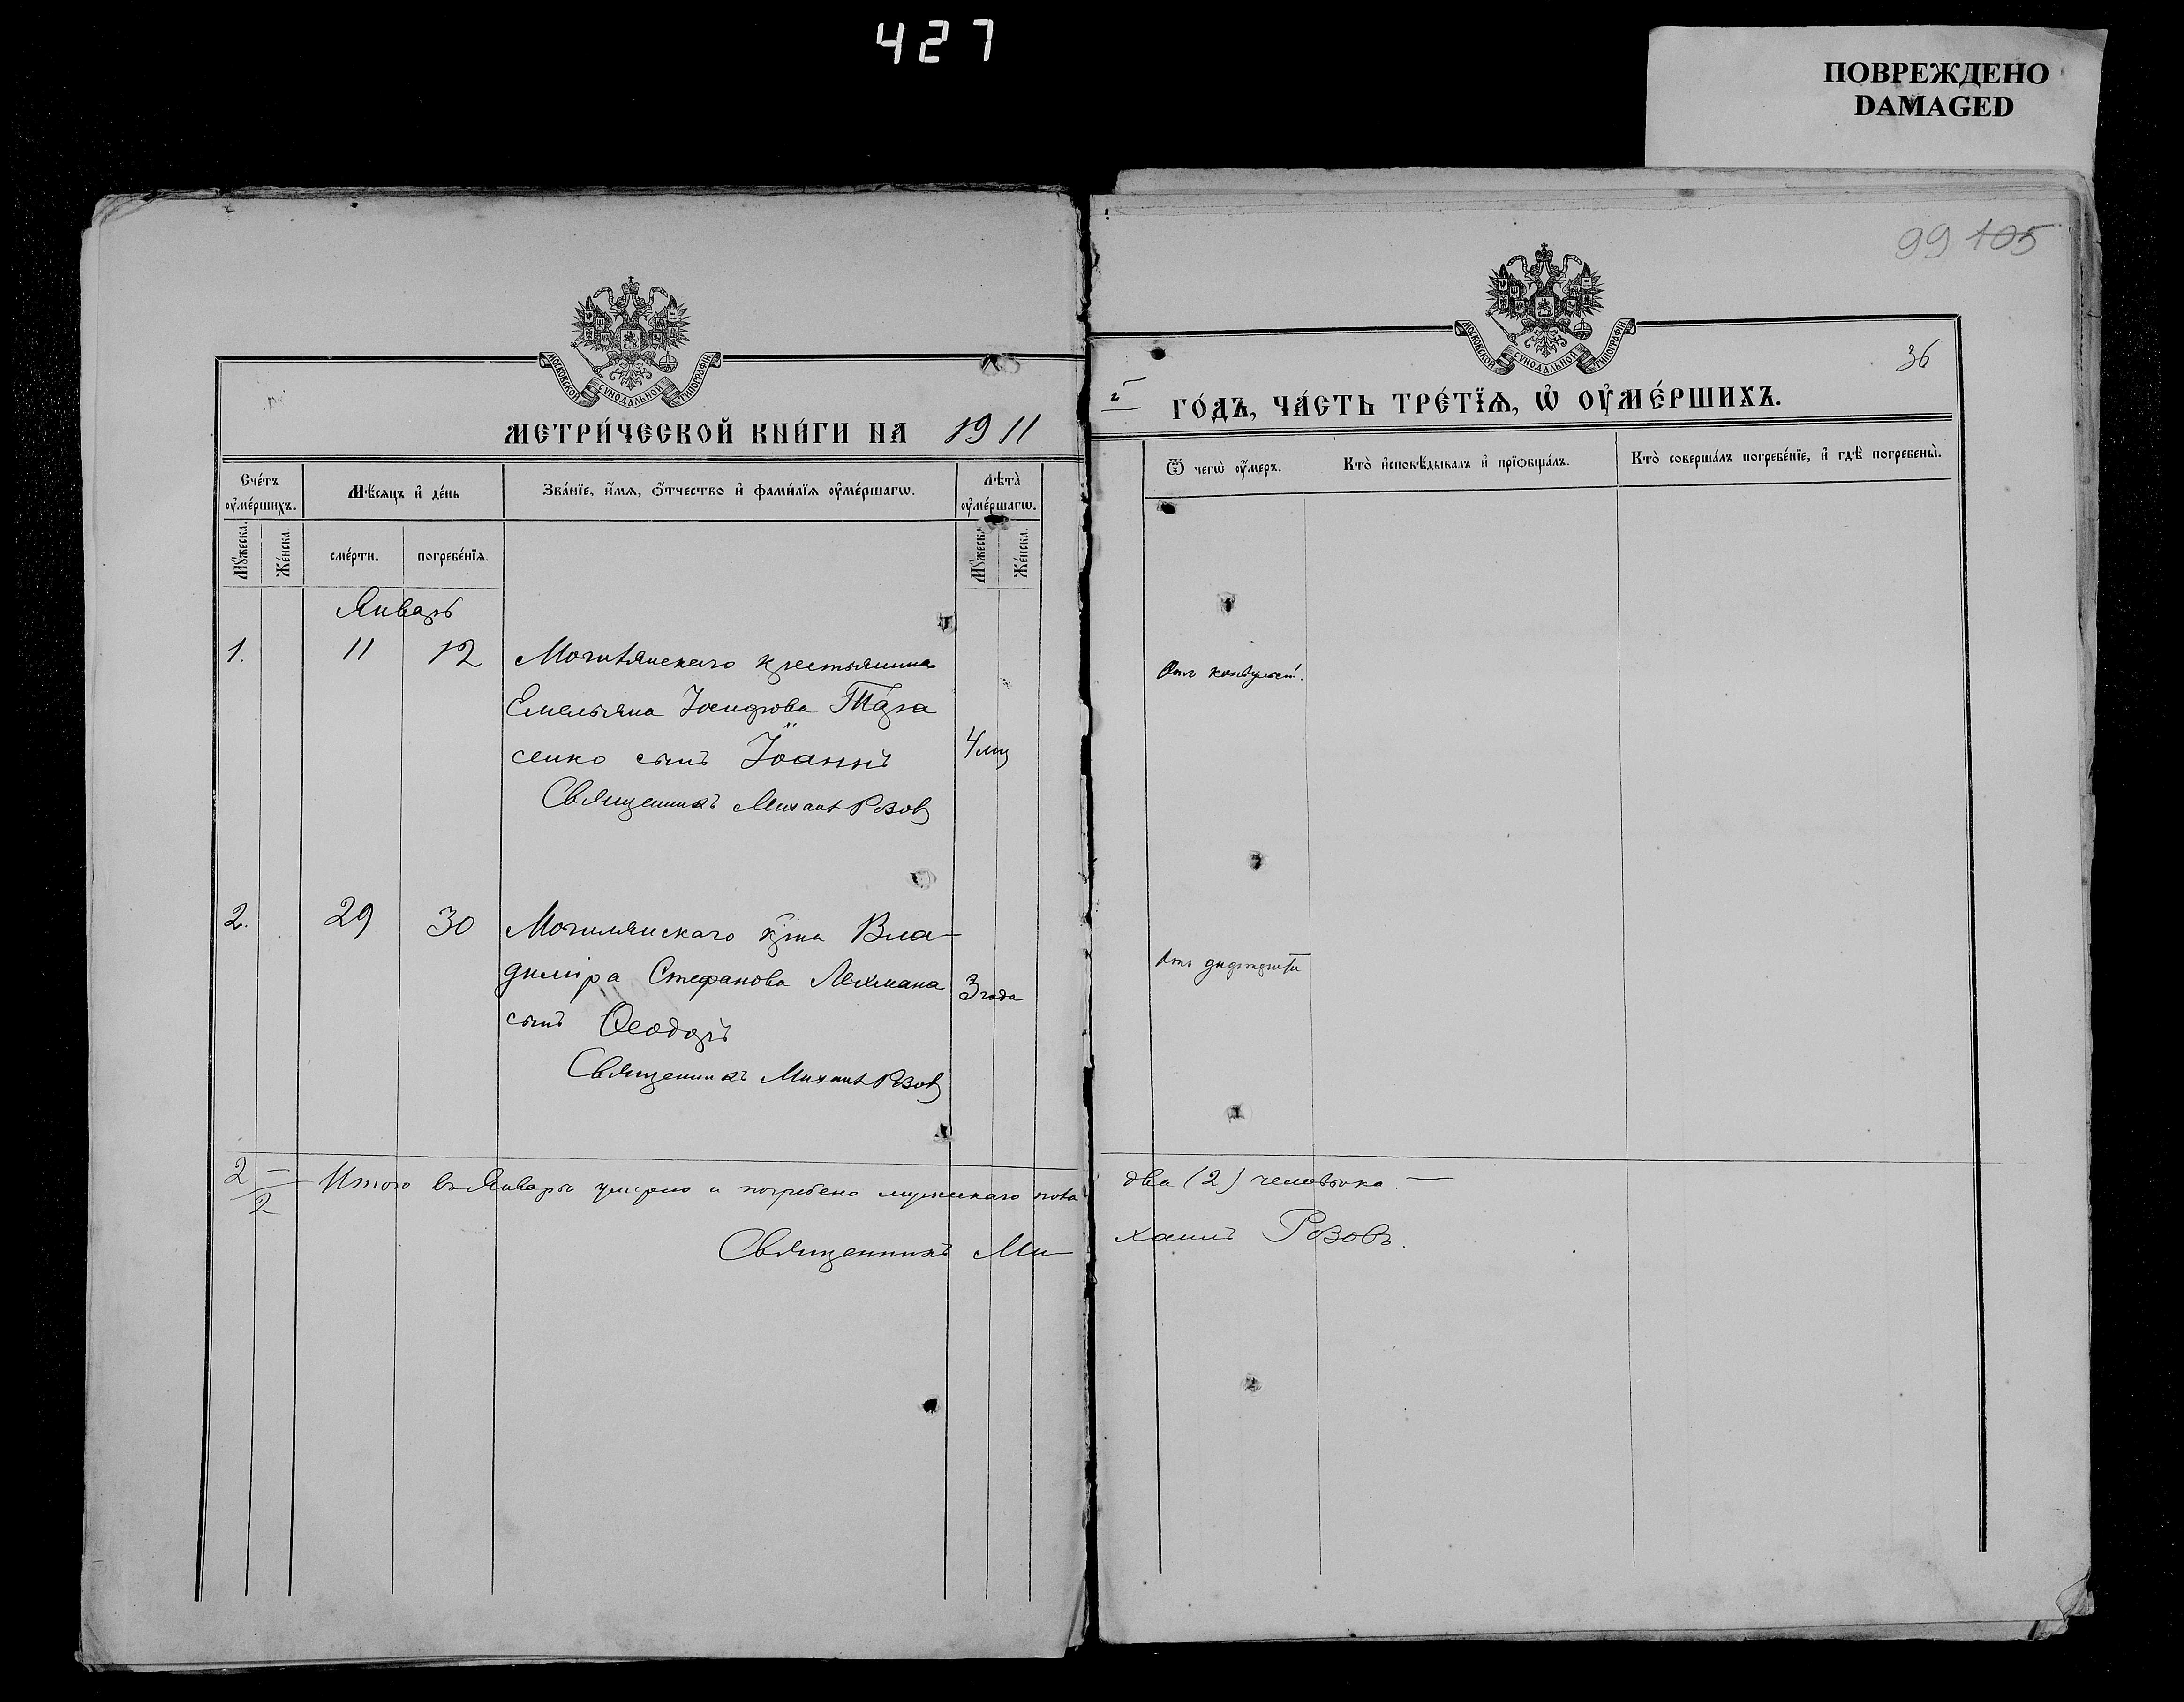 427
ПОВРЕЖДЕНО
DAMAGED
99 105
36
МОСКОВСКОЙ СѴНОДАЛЬНОЙ ТИПОГРАФІИ
МОСКОВСКОЙ СѴНОДАЛЬНОЙ ТИПОГРАФІИ
МЕТРИ́ЧЕСКОЙ КНИ́ГИ НА 1911 й ГО́ДЪ, ЧА́СТЬ ТРЕ́ТІѦ, Ѡ҆ ОУ҆МЕ́РШИХЪ.
Сче́тъ оу҆ме́ршихъ.
Мѣ́сяцъ и҆ де́нь
Зва́нїе, и҆́мѧ, ѻ҆́тчество и҆ фами́лїѧ оу҆ме́ршагѡ.
Лѣ́та̀ оу҆ме́ршагѡ.
Ѿ чегѡ̀ оу҆́меръ.
Кто̀ и҆сповѣ́дывалъ и҆ прїѻбща́лъ.
Кто̀ соверша́лъ погребе́нїе, и҆ гдѣ̀ погребены̀.
Мꙋ́жеска.
Же́нска
сме́рти.
погребе́нїѧ.
Мꙋ́жеска.
Же́нска.
Январь
1. 11 12 Могилянскаго крестьянина
Емельяна Іосифова Тара
сенко сынъ Іоаннъ 4 мц
Священникъ Михаил Розов
Отъ конвульсій.
2. 29 30 Могилянскаго кр-на Вла-
диміра Стефанова Лехмана 3 года
сынъ Ѳеодоръ
Священникъ Михаил Розов
Отъ дифтерита
2 —
2
Итого въ Январѣ умерло и погребено мужескаго пола два (2) человѣка. —
Священникъ Михаилъ Розовъ.